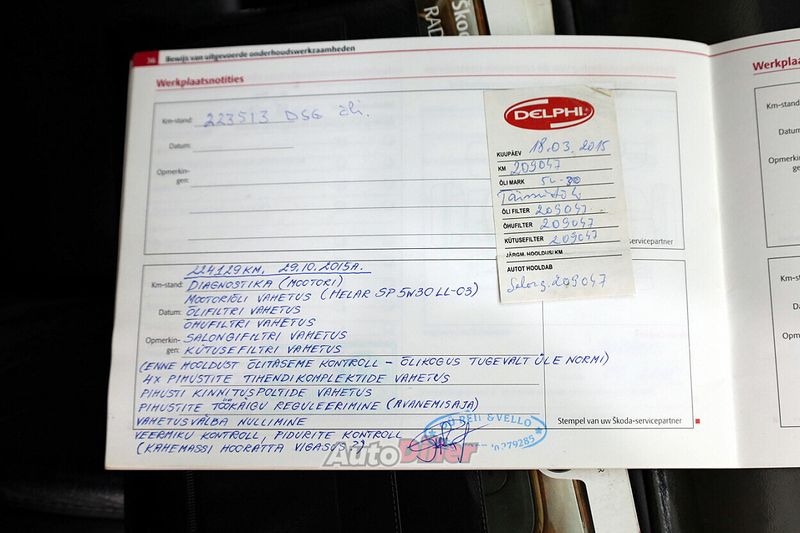 Škoda
RAD
36 Bewijs van uitgevoerde onderhoudswerkzaamheden
Werkplaatsnotities
Km-stand: 223513 DSG õli.
Datum:
Opmerkin-
gen:
DELPHI
KUUPÄEV 18.03.2015
KM 209047
ÕLI MARK 5L-30
ÕLI FILTER 209047
ÕHUFILTER 209047
KÜTUSEFILTER 209047
JÄRGM. HOOLDUSI KM
AUTOT HOOLDAB
Salong. 209047
-servicepartner
224129KM, 29.10.2015A.
Km-stand: DIAGNOSTIKA (MOOTORI)
MOOTORIÕLI VAHETUS (MELAR SP 5W30 LL-03)
Datum: ÕLIFILTRI VAHETUS
ÕHUFILTRI VAHETUS
Opmerkin- SALONGIFILTRI VAHETUS
gen: KÜTUSEFILTRI VAHETUS
(ENNE HOOLDUST ÕLITASEME KONTROLL - ÕLIKOGUS TUGEVALT ÜLE NORMI)
4X PIHUSTITE TIHENDIKOMPLEKTIDE VAHETUS
PIHUSTI KINNITUSPOLTIDE VAHETUS
PIHUSTITE TÖÖKÄIGU REGULEERIMINE (AVANEMISAJA)
VAHETUSVÄLBA NULLIMINE
VEERMIKU KONTROLL, PIDURITE KONTROLL
(KAHEMASSI HOORATTA VIGASUS?)
OÜ REII & VELLO
Stempel van uw Škoda-servicepartner
AutoDiiler
Werkplaa
Km-stand:
Datum:
Opmerkin-
gen:
Km-stand:
Datum:
Opmerkin-
gen: